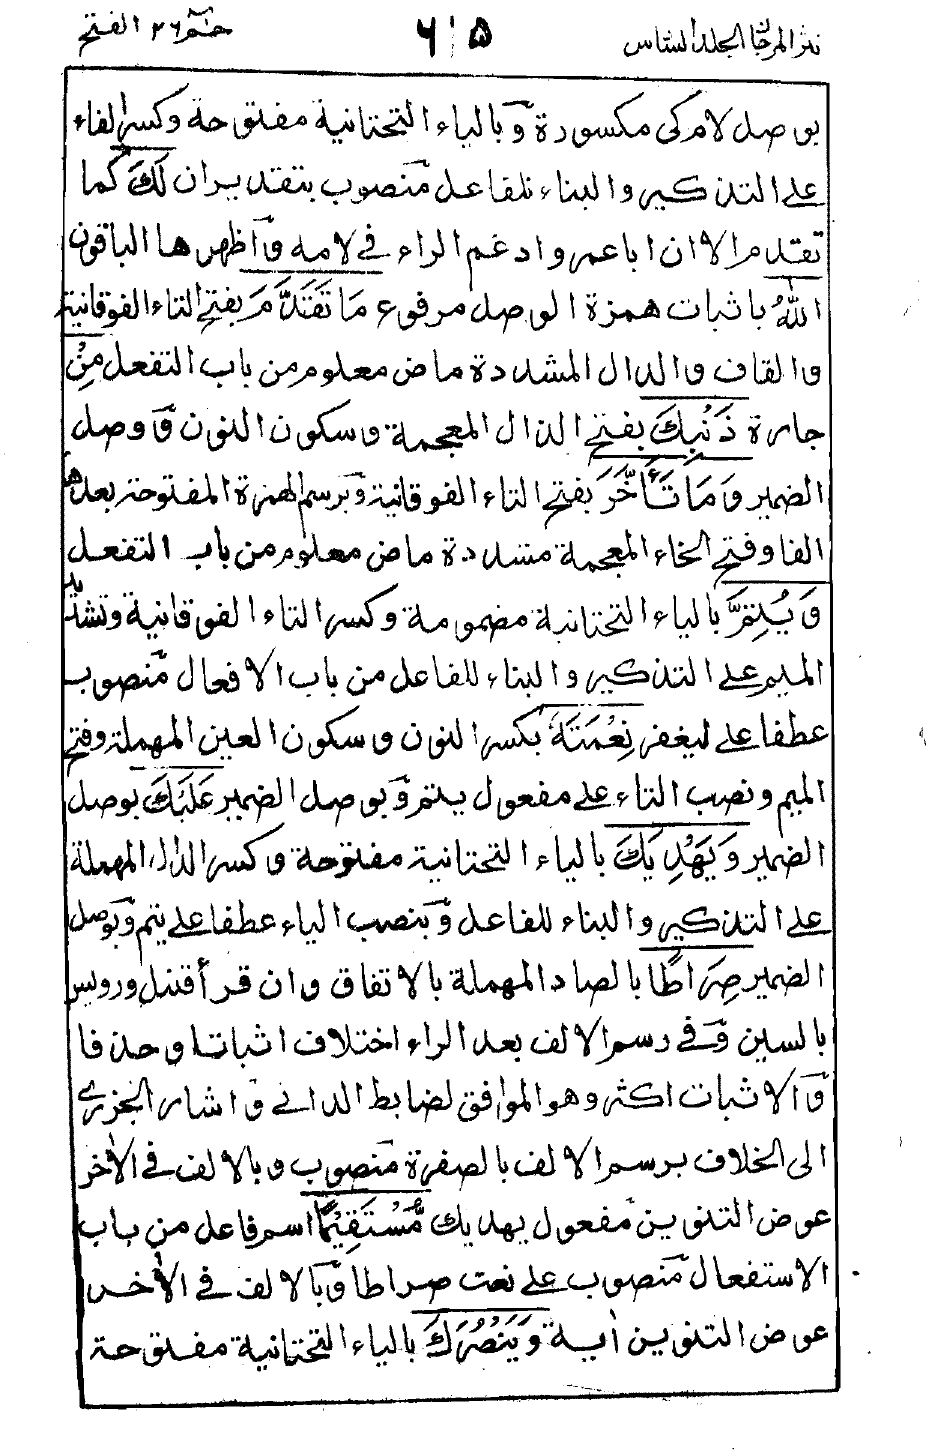 نثر المرجان الجلد السادس ٦١٥ حٰمٓ ٢٦ الفتح
بوصل لام كى مكسورة وبالياء التحتانية مفتوحة وكسر الفاء
على التذكير والبناء للفاعل منصوب بتقدير ان لَكَ كما
تقدم الا ان ابا عمرو ادغم الراء فى لامه واظهرها الباقون
اللّٰهُ باثبات همزة الوصل مرفوع مَا تَقَدَّمَ بفتح التاء الفوقانية
والقاف والدال المشددة ماض معلوم من باب التفعل مِنْ
جارة ذَنْبِكَ بفتح الذال المعجمة وسكون النون ووصل
الضمير وَمَا تَأَخَّرَ بفتح التاء الفوقانية وبرسم الهمزة المفتوحة بعدها
الفا وفتح الخاء المعجمة مشددة ماض معلوم من باب التفعل
وَيُتِمَّ بالياء التحتانية مضمومة وكسر التاء الفوقانية وتشديد
الميم على التذكير والبناء للفاعل من باب الافعال منصوب
عطفا على ليغفر نِعْمَتَهٗ بكسر النون وسكون العين المهملة وفتح
الميم ونصب التاء على مفعول يتم وبوصل الضمير عَلَيْكَ بوصل
الضمير وَيَهْدِيَكَ بالياء التحتانية مفتوحة وكسر الدال المهملة
على التذكير والبناء للفاعل وبنصب الياء عطفا على يتم وبوصل
الضمير صِرَاطًا بالصاد المهملة بالاتفاق وان قرأ قنبل ورويس
بالسين وفى رسم الالف بعد الراء اختلاف اثباتا وحذفا
والاثبات اكثر وهو الموافق لضابط الدانى واشار الجزرى
الى الخلاف برسم الالف بالصفرة منصوب وبالالف فى الاٰخر
عوض التنوين مفعول يهديك مُّسْتَقِيْمًا اسم فاعل من باب
الاستفعال منصوب على نعت صراطا وبالالف فى الاٰخر
عوض التنوين اٰية وَيَنْصُرَكَ بالياء التحتانية مفتوحة